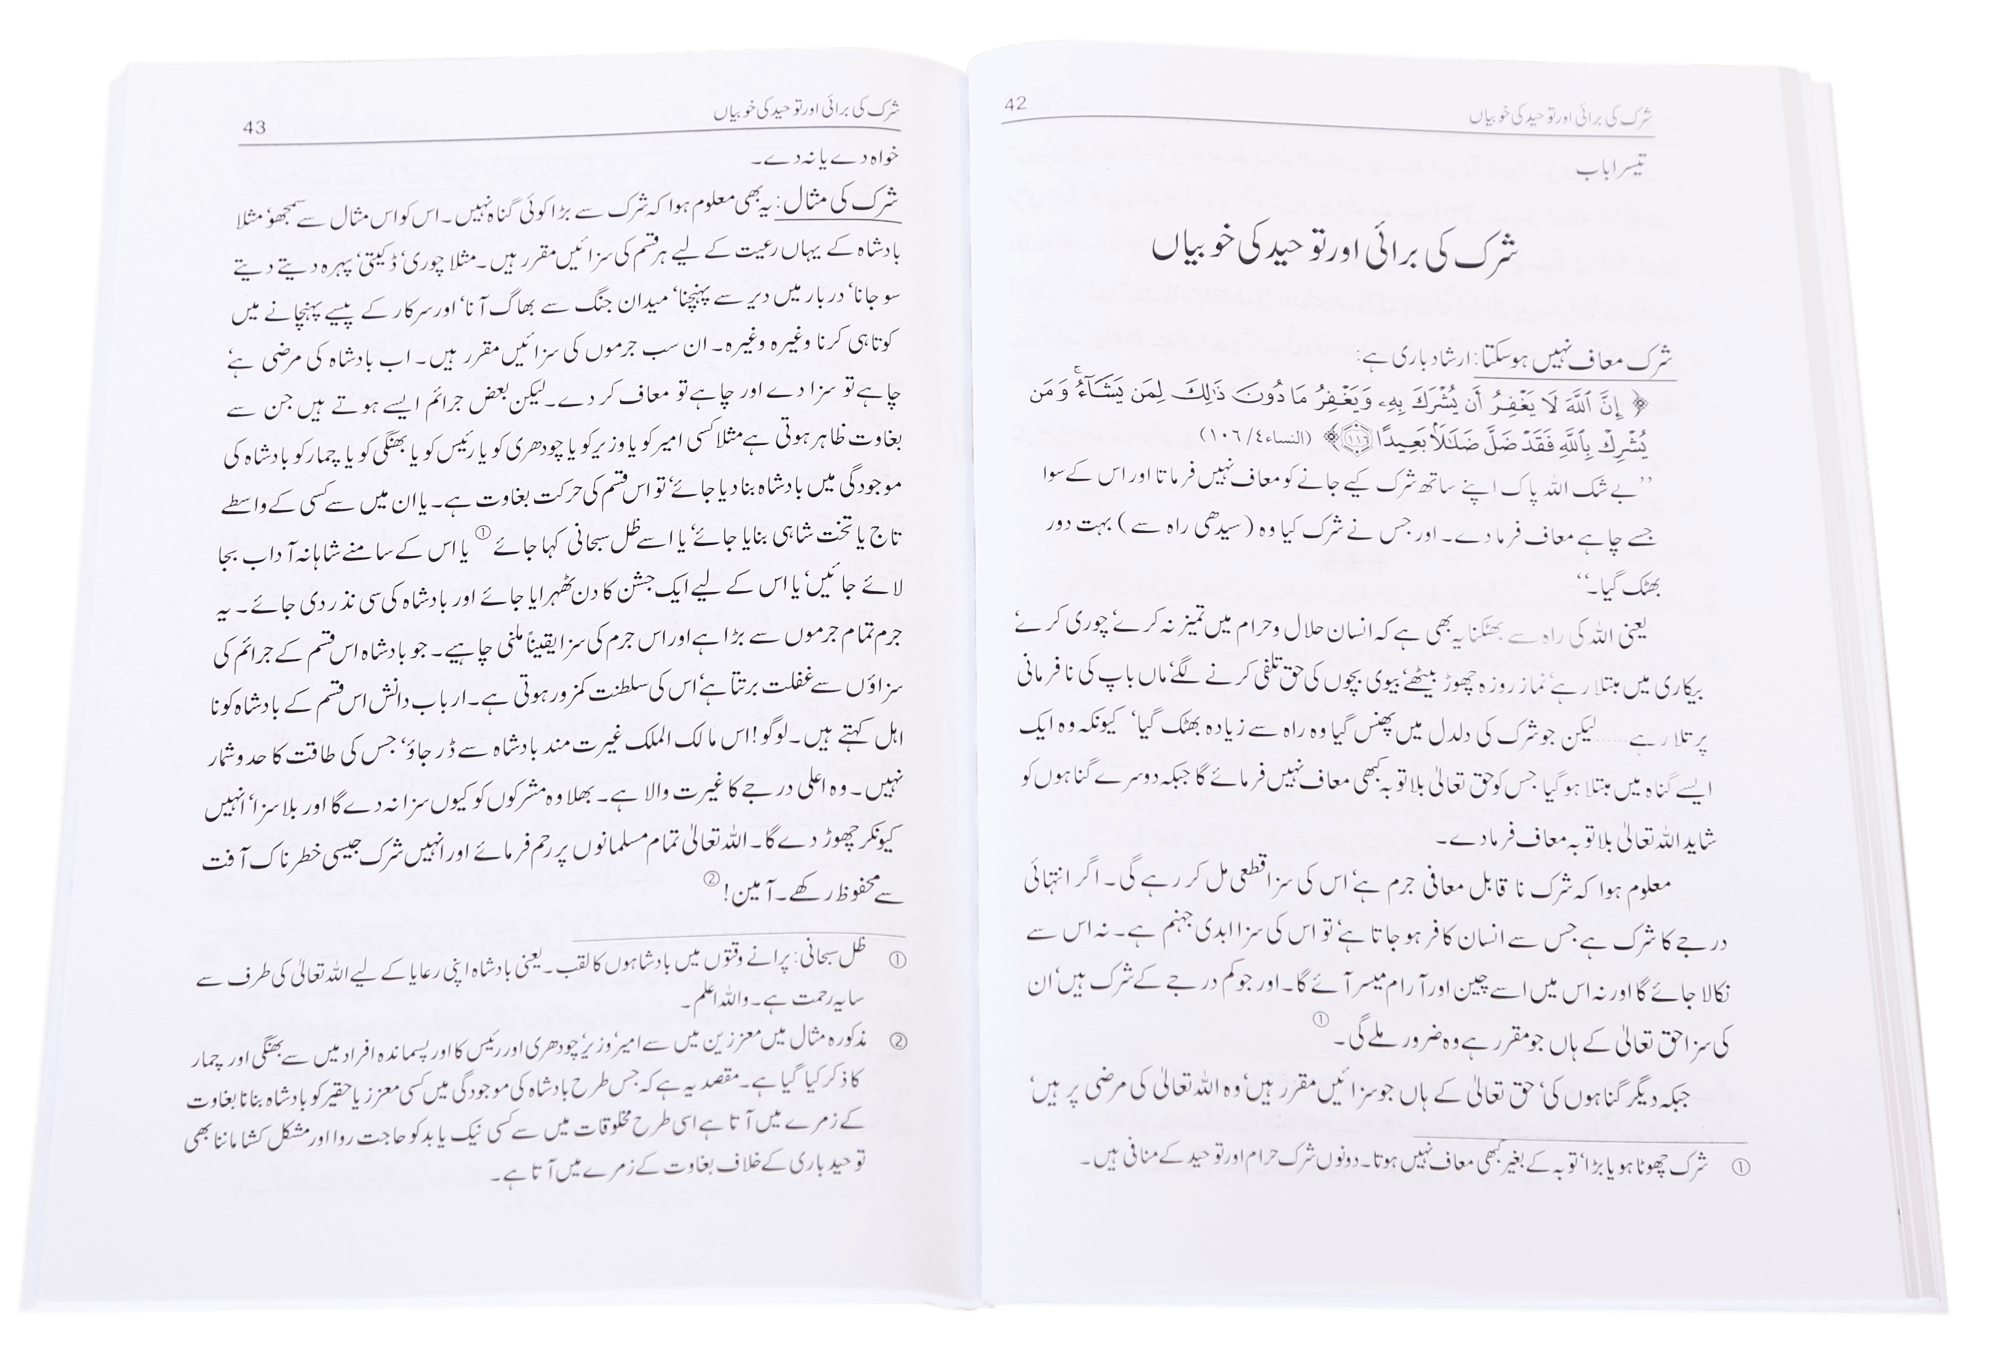 شرک کی برائی اور توحید کی خوبیاں 42
تیسرا باب
شرک کی برائی اور توحید کی خوبیاں
شرک معاف نہیں ہوسکتا: ارشاد باری ہے:
﴿ إِنَّ ٱللَّهَ لَا يَغْفِرُ أَن يُشْرَكَ بِهِۦ وَيَغْفِرُ مَا دُونَ ذَٰلِكَ لِمَن يَشَآءُ ۚ وَمَن
يُشْرِكْ بِٱللَّهِ فَقَدْ ضَلَّ ضَلَٰلًۢا بَعِيدًا ﴿١١٦﴾﴾ (النساء ٤/١٠٦)
’’بے شک اللہ پاک اپنے ساتھ شرک کیے جانے کو معاف نہیں فرماتا اور اس کے سوا
جسے چاہے معاف فرما دے۔ اور جس نے شرک کیا وہ (سیدھی راہ سے) بہت دور
بھٹک گیا۔‘‘
یعنی اللہ کی راہ سے بھٹکنا یہ بھی ہے کہ انسان حلال و حرام میں تمیز نہ کرے‘ چوری کرے‘
بیکاری میں مبتلا رہے‘ نماز روزہ چھوڑ بیٹھے‘ بیوی بچوں کی حق تلفی کرنے لگے‘ ماں باپ کی نافرمانی
پر تلا رہے......لیکن جو شرک کی دلدل میں پھنس گیا وہ راہ سے زیادہ بھٹک گیا‘ کیونکہ وہ ایک
ایسے گناہ میں مبتلا ہو گیا جس کو حق تعالیٰ بلا توبہ کبھی معاف نہیں فرمائے گا جبکہ دوسرے گناہوں کو
شاید اللہ تعالیٰ بلا توبہ معاف فرما دے۔
معلوم ہوا کہ شرک نا قابل معافی جرم ہے‘ اس کی سزا قطعی مل کر رہے گی۔ اگر انتہائی
درجے کا شرک ہے جس سے انسان کافر ہو جاتا ہے‘ تو اس کی سزا ابدی جہنم ہے۔ نہ اس سے
نکالا جائے گا اور نہ اس میں اسے چین اور آرام میسر آئے گا۔ اور جو کم درجے کے شرک ہیں‘ ان
کی سزا حق تعالیٰ کے ہاں جو مقرر ہے وہ ضرور ملے گی۔ ①
جبکہ دیگر گناہوں کی‘ حق تعالیٰ کے ہاں جو سزائیں مقرر ہیں‘ وہ اللہ تعالیٰ کی مرضی پر ہیں‘
① شرک چھوٹا ہو یا بڑا‘ توبہ کے بغیر کبھی معاف نہیں ہوتا۔ دونوں شرک حرام اور توحید کے منافی ہیں۔
شرک کی برائی اور توحید کی خوبیاں 43
خواہ دے یا نہ دے۔
شرک کی مثال: یہ بھی معلوم ہوا کہ شرک سے بڑا کوئی گناہ نہیں۔ اس کو اس مثال سے سمجھو‘ مثلا
بادشاہ کے یہاں رعیت کے لیے ہر قسم کی سزائیں مقرر ہیں۔ مثلا چوری‘ ڈکیتی‘ پہرہ دیتے دیتے
سو جانا‘ دربار میں دیر سے پہنچنا‘ میدان جنگ سے بھاگ آنا‘ اور سرکار کے پیسے پہنچانے میں
کوتاہی کرنا وغیرہ وغیرہ۔ ان سب جرموں کی سزائیں مقرر ہیں۔ اب بادشاہ کی مرضی ہے‘
چاہے تو سزا دے اور چاہے تو معاف کر دے۔ لیکن بعض جرائم ایسے ہوتے ہیں جن سے
بغاوت ظاہر ہوتی ہے مثلا کسی امیر کو یا وزیر کو یا چودھری کو یا رئیس کو یا بھنگی کو یا چمار کو بادشاہ کی
موجودگی میں بادشاہ بنا دیا جائے‘ تو اس قسم کی حرکت بغاوت ہے۔ یا ان میں سے کسی کے واسطے
تاج یا تخت شاہی بنایا جائے‘ یا اسے ظل سبحانی کہا جائے ① یا اس کے سامنے شاہانہ آداب بجا
لائے جائیں‘ یا اس کے لیے ایک جشن کا دن ٹھہرایا جائے اور بادشاہ کی سی نذر دی جائے۔ یہ
جرم تمام جرموں سے بڑا ہے اور اس جرم کی سزا یقیناً ملنی چاہیے۔ جو بادشاہ اس قسم کے جرائم کی
سزاؤں سے غفلت برتتا ہے‘ اس کی سلطنت کمزور ہوتی ہے۔ ارباب دانش اس قسم کے بادشاہ کو نا
اہل کہتے ہیں۔ لوگو! اس مالک الملک غیرت مند بادشاہ سے ڈر جاؤ‘ جس کی طاقت کا حد و شمار
نہیں۔ وہ اعلی درجے کا غیرت والا ہے۔ بھلا وہ مشرکوں کو کیوں سزا نہ دے گا اور بلا سزا‘ انہیں
کیونکر چھوڑ دے گا۔ اللہ تعالیٰ تمام مسلمانوں پر رحم فرمائے اور انہیں شرک جیسی خطرناک آفت
سے محفوظ رکھے۔ آمین! ②
① ظل سبحانی: پرانے وقتوں میں بادشاہوں کا لقب۔ یعنی بادشاہ اپنی رعایا کے لیے اللہ تعالیٰ کی طرف سے
سایہ رحمت ہے۔ واللہ اعلم۔
② مذکورہ مثال میں معززین میں سے امیر‘ وزیر‘ چودھری اور رئیس کا اور پسماندہ افراد میں سے بھنگی اور چمار
کا ذکر کیا گیا ہے۔ مقصد یہ ہے کہ جس طرح بادشاہ کی موجودگی میں کسی معزز یا حقیر کو بادشاہ بنانا بغاوت
کے زمرے میں آتا ہے اسی طرح مخلوقات میں سے کسی نیک یا بد کو حاجت روا اور مشکل کشا ماننا بھی
توحید باری کے خلاف بغاوت کے زمرے میں آتا ہے۔